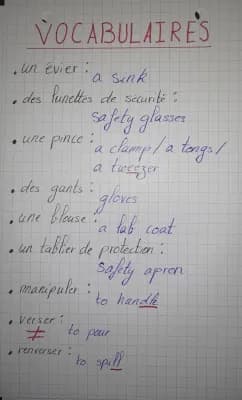 VOCABULAIRES
• un évier :
a sink
• des lunettes de sécurité :
Safety glasses
• une pince :
a clamp / a tongs /
a tweezer
• des gants :
gloves
• une blouse :
a lab coat
• un tablier de protection :
Safety apron
• manipuler :
to handle
• verser :
≠ to pour
• renverser :
to spill